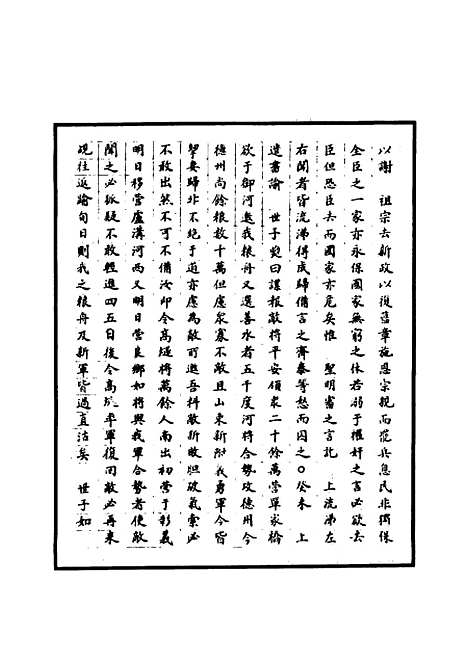 以謝　祖宗去新政以復舊章施恩宗親而罷兵息民非獨保
全臣之一家亦永保國家無窮之休若弱于權奸之言必欲去
臣但恐臣去而國家亦危矣惟　聖明審之言訖　上流涕左
右聞者皆流涕得成歸備言之齊泰等愁而囚之○癸未　上
遣書諭　世子煚曰諜報敵將平安領衆二十餘萬營單家橋
欲于御河邀我粮舟又選善水者五千度河將合勢攻德州今
德州尚餘粮數十萬但慮衆寡不敵且山東新附義勇軍今皆
挈妻歸北不絶于道亦慮為敵所邀吾料敵新敗胆破氣索必
不敢出然不可不備汝即令高煫將萬餘人南出初營于彰義
明日移營盧溝河西又明日營良鄉如將與我軍合勢者使敵
聞之必狐疑不敢輕進四五日後令高煫率軍復回敵必再來
覘往返踰旬日則我之粮舟及新軍皆過直沽矣　世子如